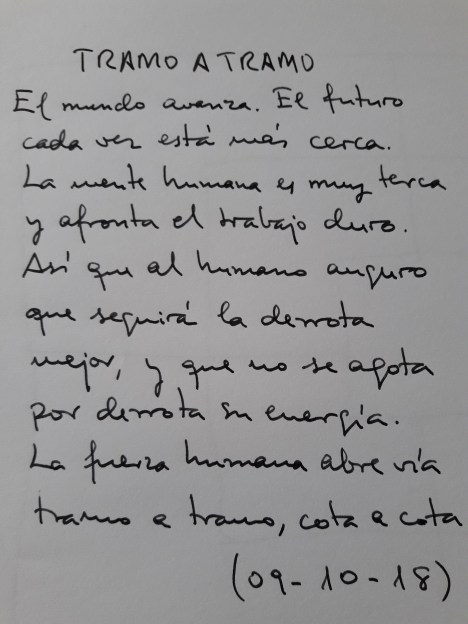 TRAMO A TRAMO
El mundo avanza. El futuro
cada vez está más cerca.
La mente humana es muy terca
y afronta el trabajo duro.
Así que al humano auguro
que seguirá la derrota
mejor, y que no se agota
por derrota su energía.
La fuerza humana abre vía
tramo a tramo, cota a cota
(09-10-18)